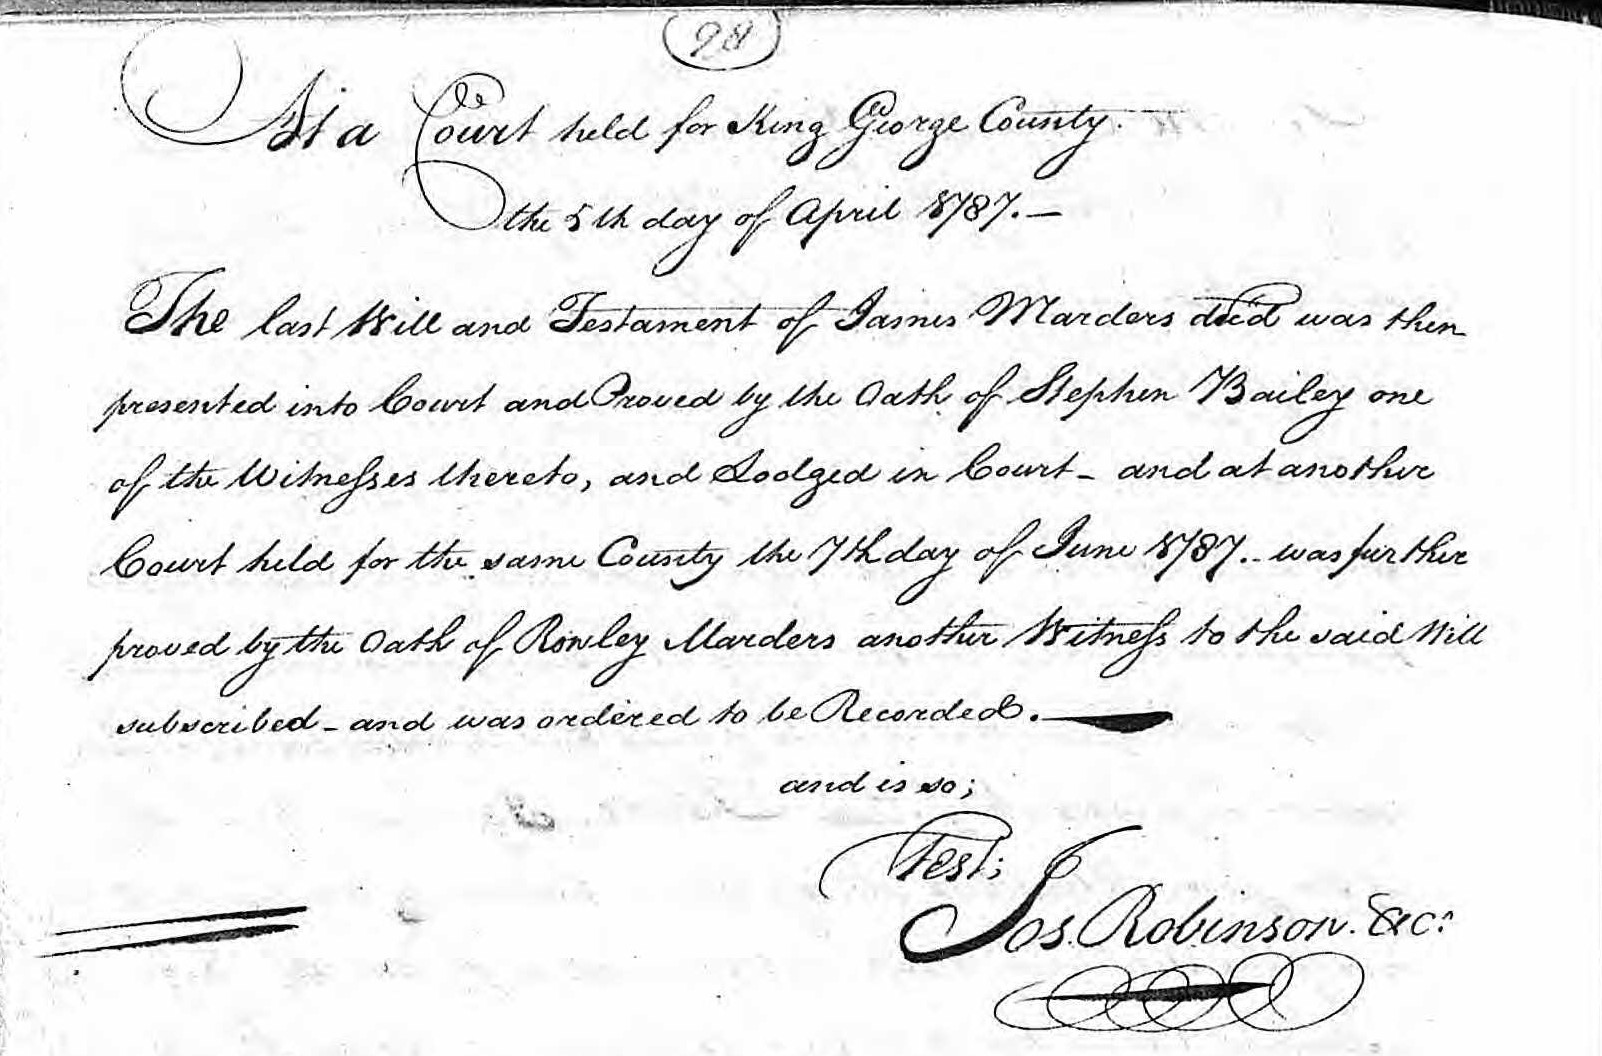 98
At a Court held for King George County.
the 5th day of April 1787.—
The last Will and Testament of James Marders decd was then
presented into Court and Proved by the Oath of Stephen Bailey one
of the Witnesses thereto, and Lodged in Court - and at another
Court held for the same County the 7th day of June 1787. was further
proved by the Oath of Rowley Marders another Witness to the said Will
subscribed - and was ordered to be Recorded.—
and is so;
Test;
Jos. Robinson. &c.